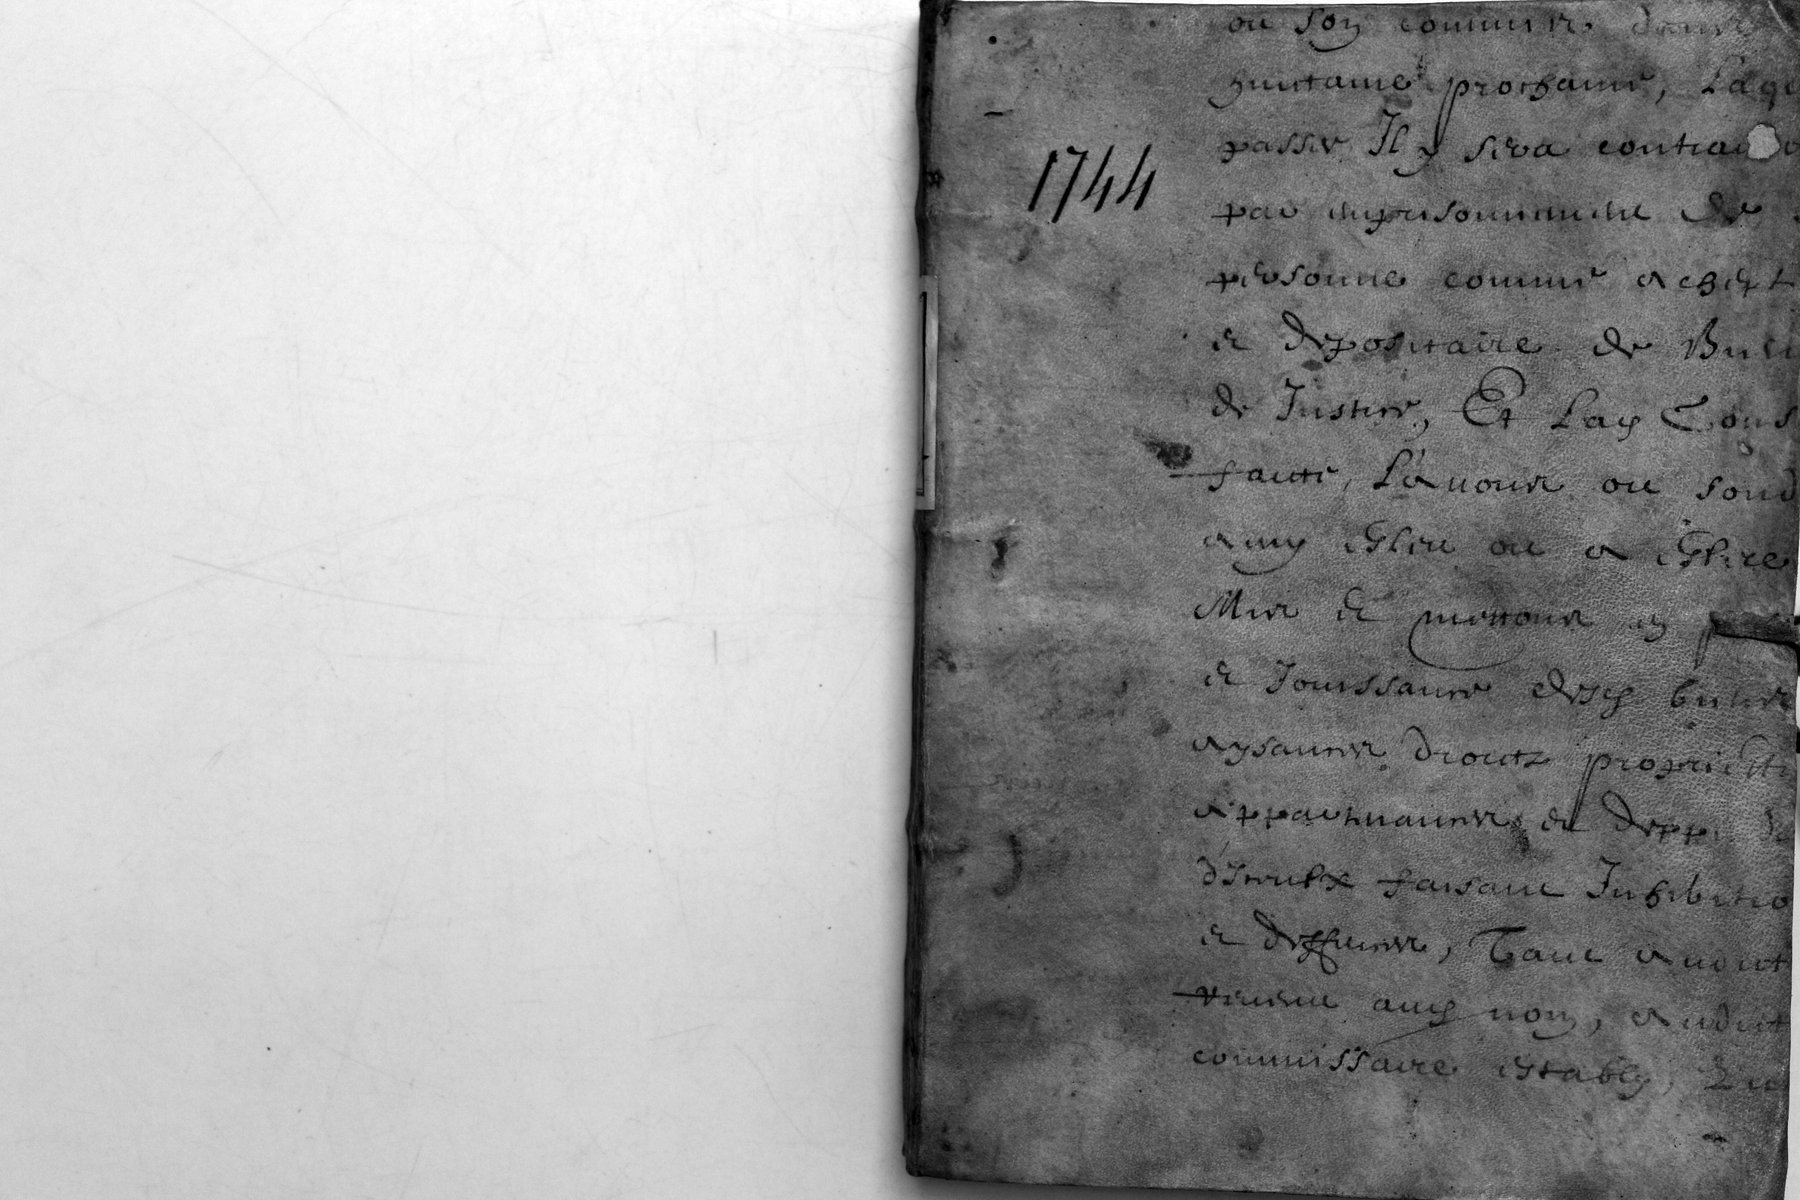 1744
ou son commis dans
huictaine prochaine, Laqu
passée Il y sera contrai
par emprisonnement de
personne comme achept
et depositaire de Bien
de Justice, Et Lad
faute, L'auons ou
amy esleu ou a eslire
Mis et mettons en
et Jouissance desd biens
aysances droictz propriette
appartenances et deppe
d'Iceulx faisant Inhibitio
et deffences, Tant audit
aud nom, audit
commissaire estably,